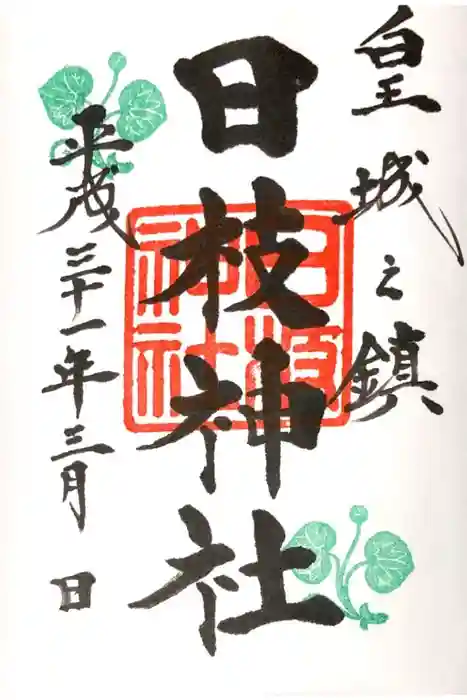 皇城之鎮
日枝神社
平成三十一年三月 日
日枝
神社